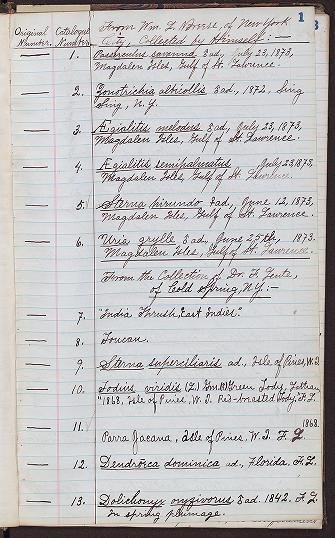 1
From Wm. L. Breese, of New York
City, Collected by Himself: —
Original Number.
Catalogue Number.
1. Passerculus savanna ad., July 23, 1873,
Magdalen Isles, Gulf of St. Lawrence.
2. Zonotrichia albicollis ad., 1872, Sing
Sing, N.Y.
3. Ægialitis melodus ad, July 23, 1873,
Magdalen Isles, Gulf of St. Lawrence.
4. Ægialitis semipalmatus July 23, 1873
Magdalen Isles, Gulf of St. Lawrence.
5. Sterna hirundo ad., June 12, 1873,
Magdalen Isles, Gulf of St. Lawrence.
6. Uria grylle ad., June 25th, 1873.
Magdalen Isles, Gulf of St. Lawrence.
From the Collection of Dr. F.
of Cold Spring, N.Y.:—
7. "India Thrush, East Indies".
8. Toucan.
9. Sterna superciliaris ad., Isle of Pines, W.I.
10. Todus viridis (L.) Green Tody,
"1868, Isle of Pines, W.I. Red-breasted Tody", F.L.
11. 1868.
Parra Jacana, Isle of Pines, W.I. F.L.
12. Dendrœca dominica ad., Florida. F.L.
13. Dolichonyx oryzivorus ad. 1842. F.L.
In spring plumage.